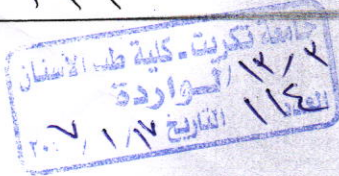 جامعة تكريت - كلية طب الأسنان
الواردة
١٣/٣
العدد ١١٤
التاريخ ١٧/١/٢٠٠٧